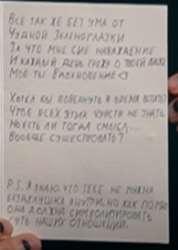 Все так же без ума от
Чудной Зеленоглазки
За что мне сие наваждение
И каждый день грежу о твоей ласке
Моё ты Вдохновение <3
Хотел бы повернуть я время вспять
Чтоб всех этих чувств не знать
Но есть ли тогда смысл...
Вообще существовать?
P.S. Я знаю что тебе не нужна
безделушка но как по мне
она должна символизировать
суть наших отношений.